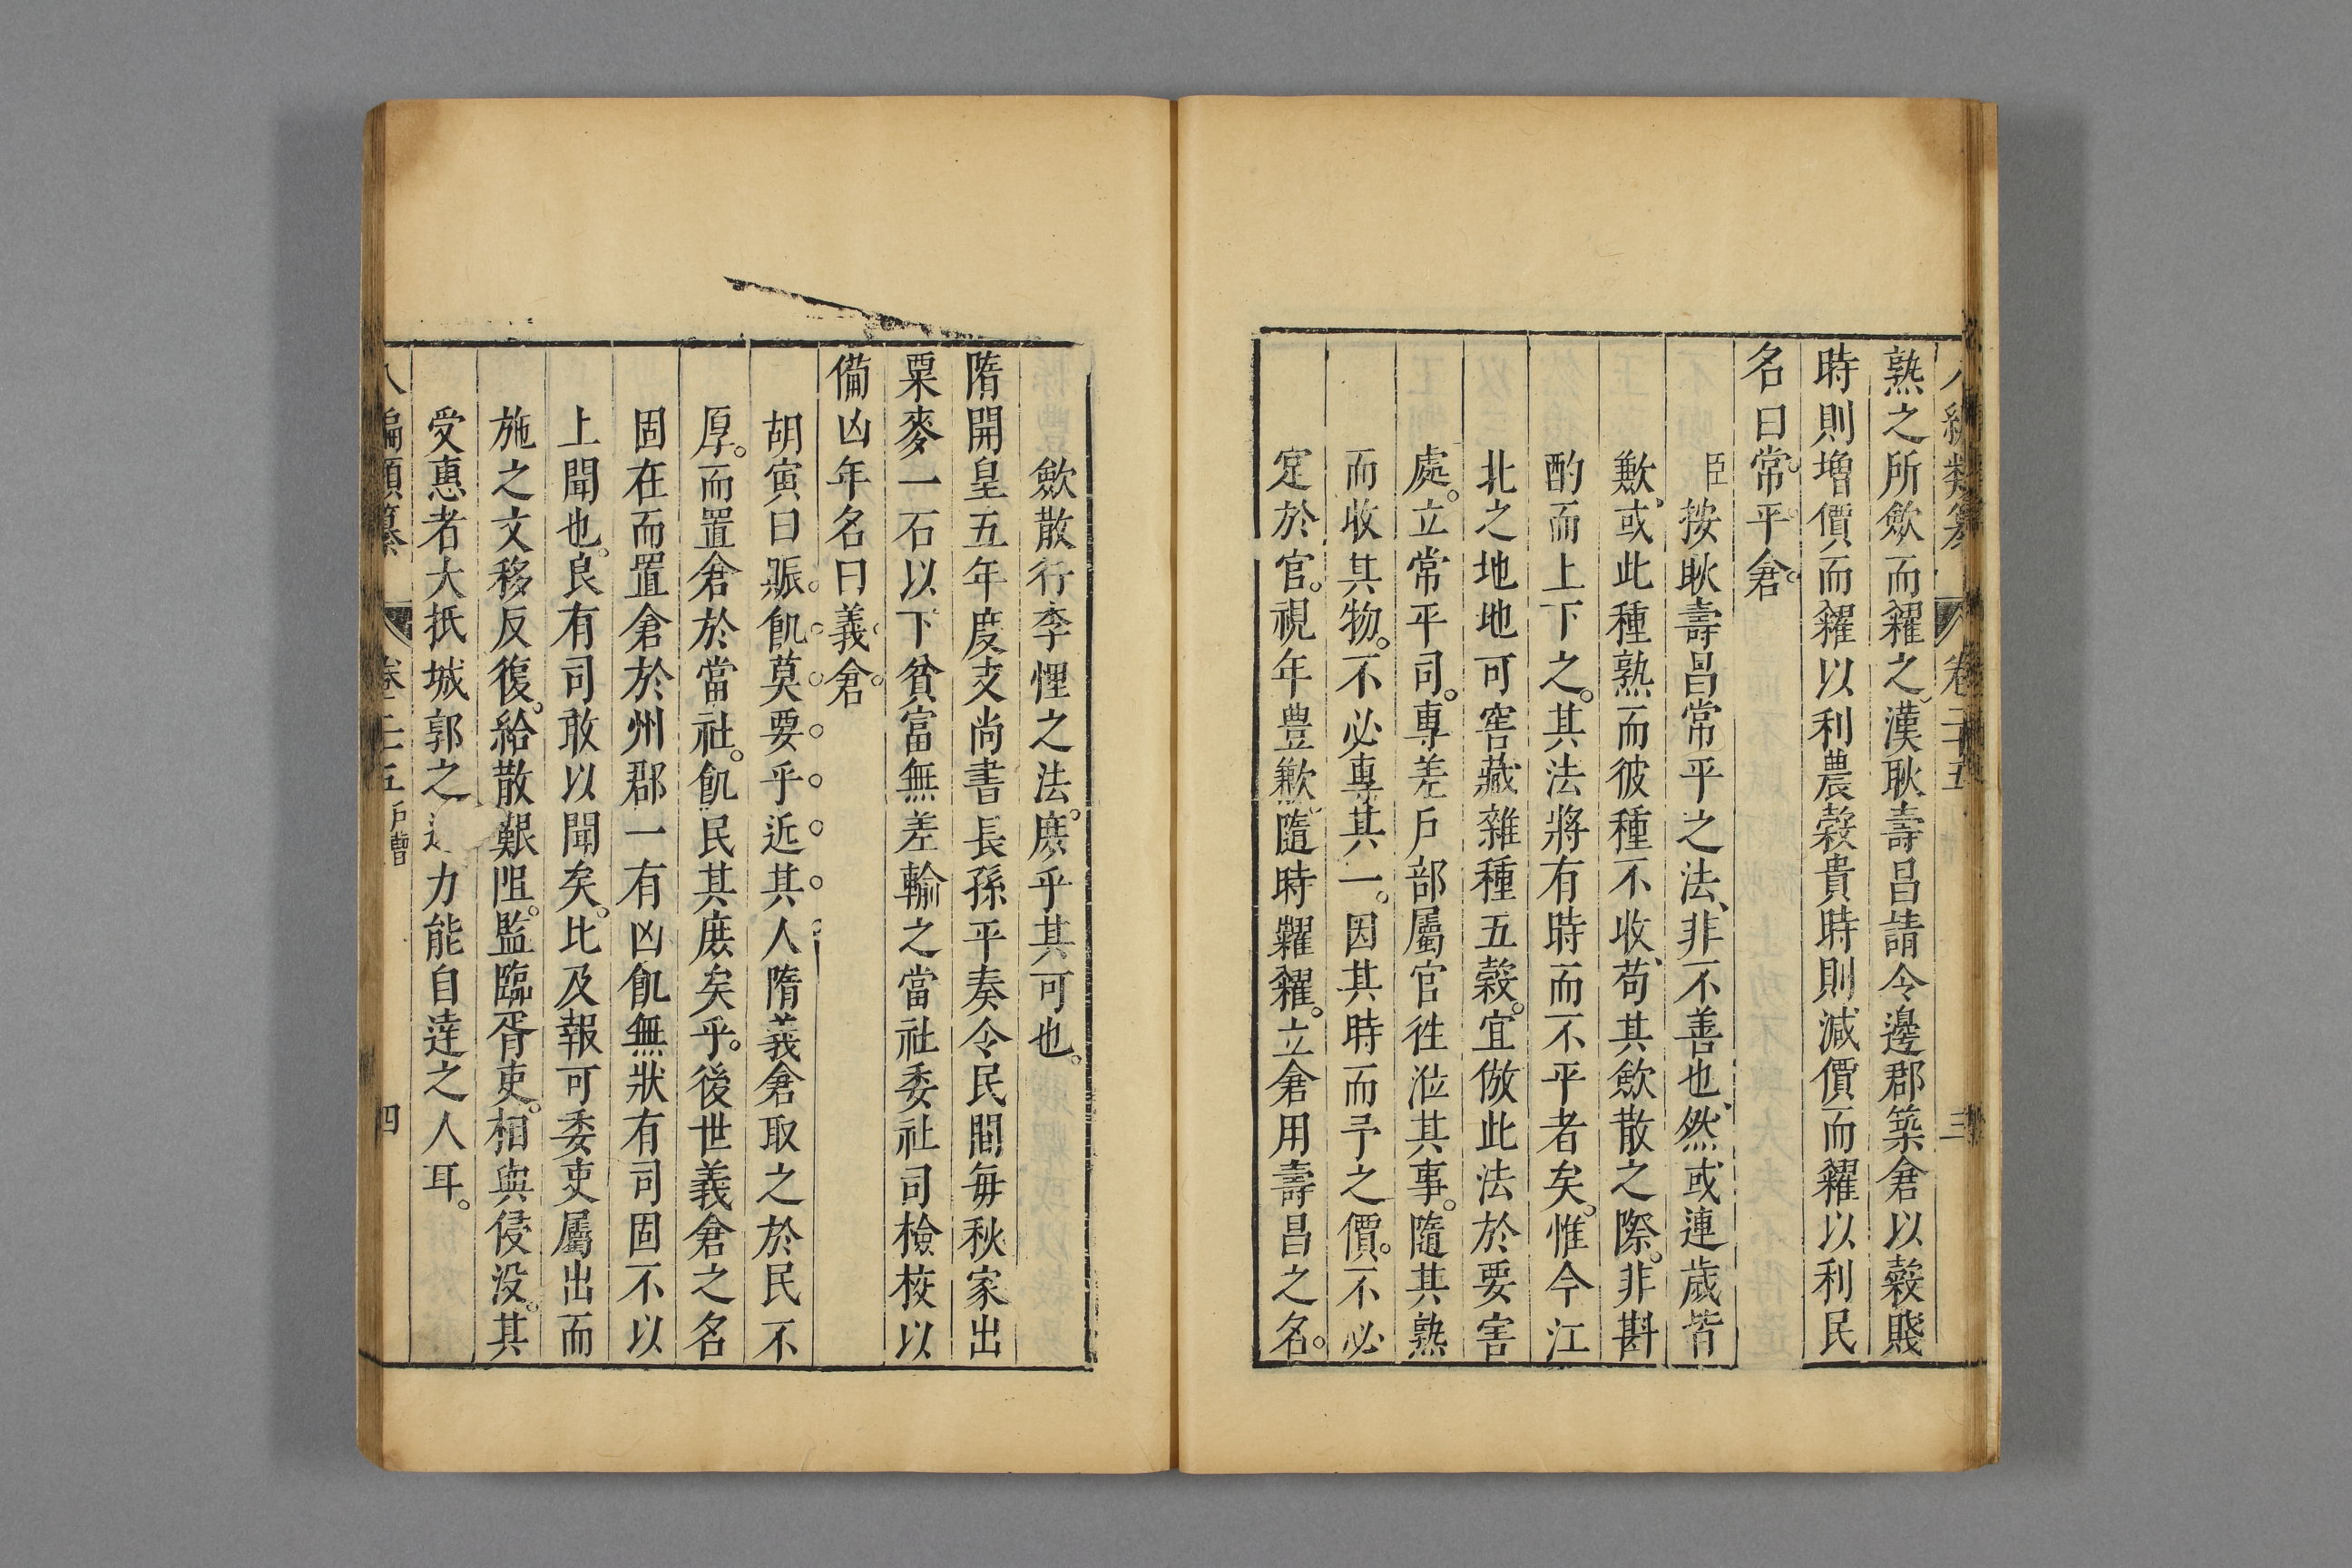 八編類纂 卷二十五 三
熟之所斂而糴之漢耿壽昌請令邊郡築倉以穀賤
時則增價而糴以利農穀貴時則減價而糶以利民
名曰常平倉
臣按耿壽昌常平之法、非不善也、然或連歲皆
歉、或此種熟而彼種不收、苟其斂散之際。非斟
酌而上下之。其法將有時而不平者矣。惟今江
北之地地可窖藏雜種五穀。宜倣此法於要害
處。立常平司。專差戶部屬官徃涖其事。隨其熟
而收其物。不必專其一。因其時而予之價。不必
定於官。視年豊歉、隨時糶糴。立倉用壽昌之名。
斂散行李悝之法。庶乎其可也。
隋開皇五年度支尚書長孫平奏令民間每秋家出
粟麥一石以下貧富無差輸之當社委社司檢校以
備凶年名曰義倉
胡寅曰賑飢莫要乎近其人隋義倉取之於民不
厚。而置倉於當社。飢民其庶矣乎。後世義倉之名
固在而置倉於州郡一有凶飢無狀有司固不以
上聞也。良有司敢以聞矣。比及報可委吏屬出而
施之文移反復。給散艱阻。監臨胥吏。相與侵沒。其
受惠者大抵城郭之近力能自達之人耳。
八編類纂 卷二十五 戶曹 四